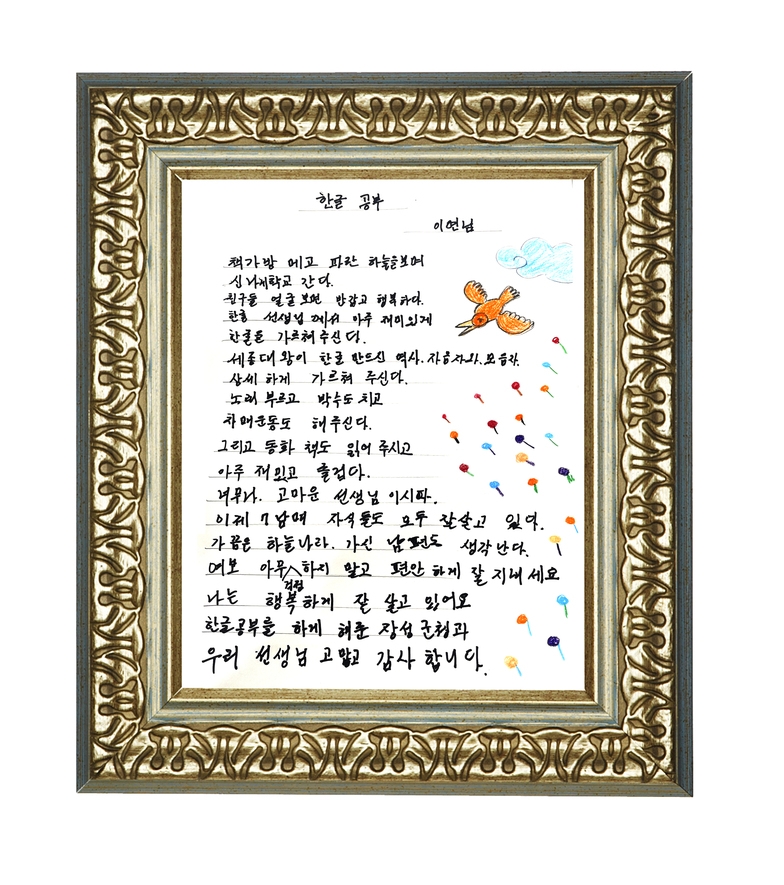 한글 공부
이연님
책가방 메고 파란 하늘을보며
신나게학교 간다.
친구들 얼굴보면 반갑고 행복하다.
한글 선생님 께서 아주 재미있게
한글을 가르쳐주신다.
세종대왕이 한글 만드신 역사. 자음자와. 모음자.
상세하게 가르쳐 주신다.
노래 부르고 박수도 치고
치매운동도 해주신다.
그리고 동화 책도 읽어 주시고
아주 재밌고 즐겁다.
너무나. 고마운 선생님 이시다.
이제 7남매 자식들도 모두 잘살고 있다.
가끔은 하늘나라. 가신 남편도 생각난다.
여보 아무 걱정 하지 말고 편안하게 잘 지내세요
나는 행복하게 잘 살고 있어요
한글공부를 하게 해준 장성군청과
우리 선생님 고맙고 감사 합니다.